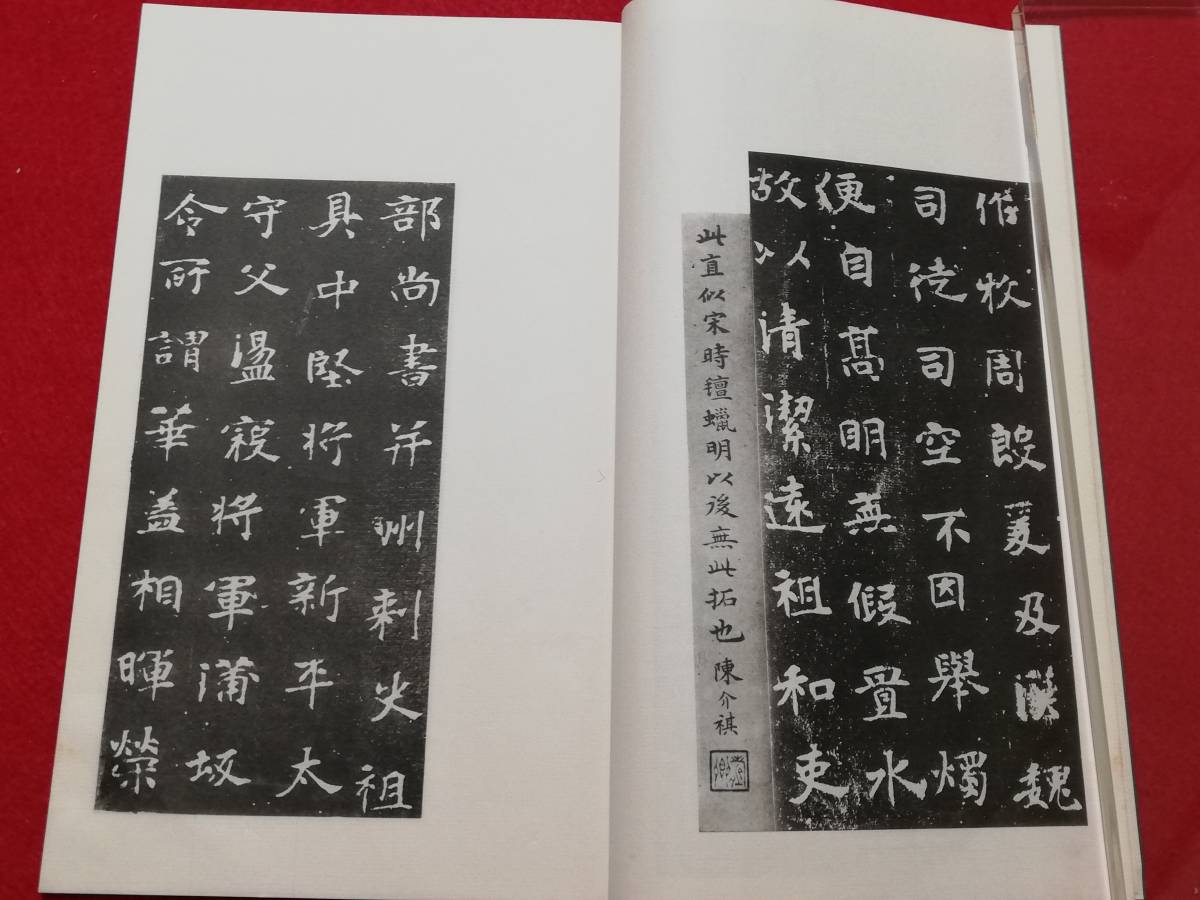 脩牧周殷爰及漢魏
司徒司空不因舉燭
便自髙明無假置水
故以清潔遠祖和吏
此直似宋時氊蠟明以後無此拓也 陳介祺
壽卿
部尚書并州刺史祖
具中堅將軍新平太
守父盪寇將軍蒲坂
令所謂華蓋相暉榮